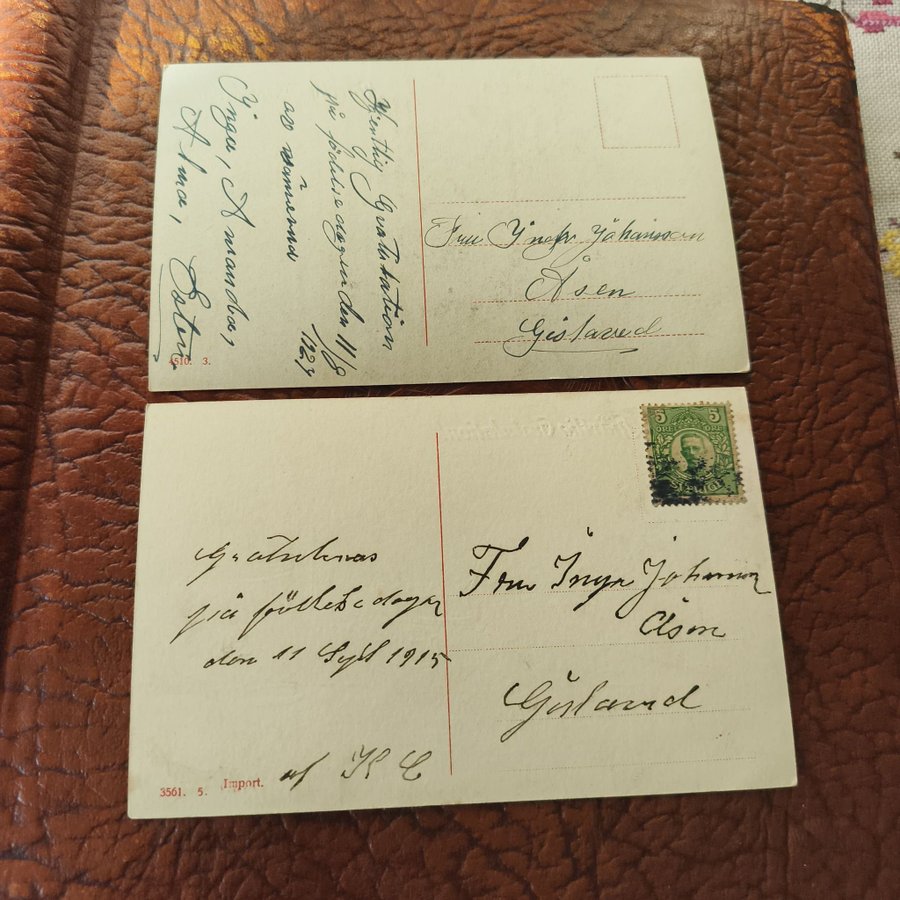 Hjertlig Gratulation
på födelsedagen den 11/9
av vännerna
Inga, Amanda,
Alma, Ester
4510. 3.
Fru Inga Johansson
Åsen
Gislaved
5 5
ÖRE ÖRE
SVERIGE
Gratuleras
på föllsedagen
den 11 Sept 1915
af K C
3561. 5. Import.
Fru Inga Johansson
Åsen
Gislaved